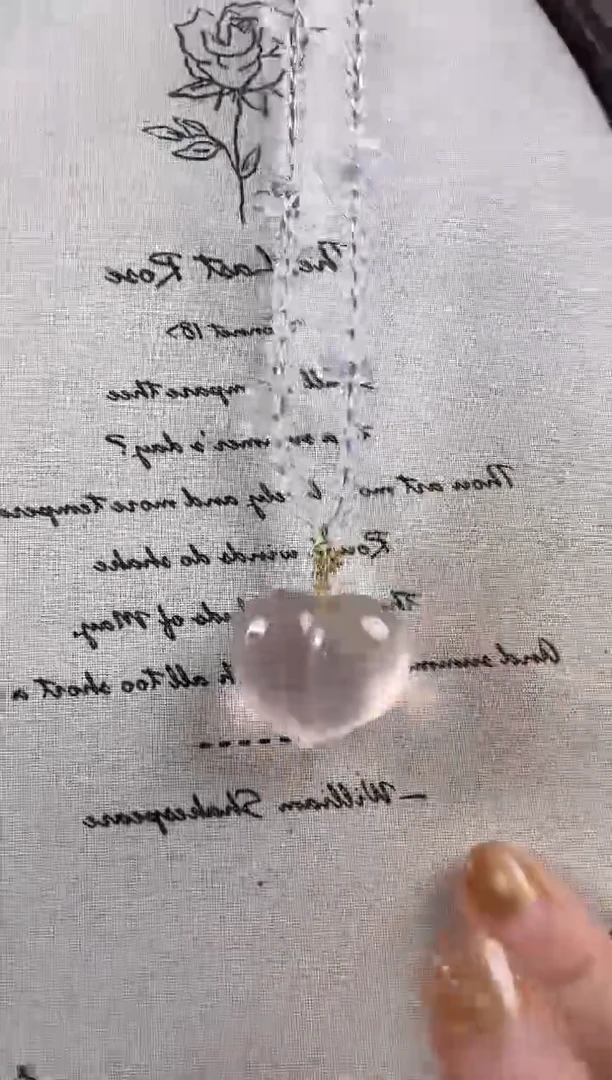 The Last Rose
mpare thee
a
mer's day?
Thou art mo ely and more tempera
Rou winds do shake
Th uds of May,
And summ h all too short a
-----
—William Shakespeare